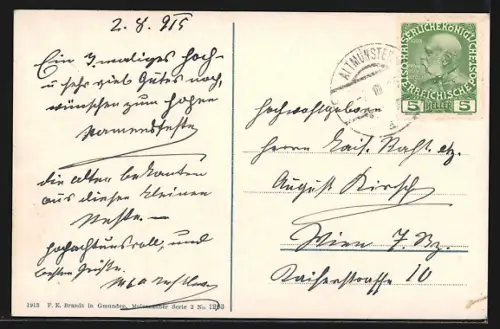 2. 8. 915
Ein 3 maliges hoch
u sehr viel Gutes noch,
wünschen zum hohen
Namensfeste
die alten bekannten
aus diesen kleinen
Neste. —
hochachtungsvoll, und
besten Grüße.
1913 F. E. Brandt in Gmunden, Serie 2 No
ALTMÜNSTER
KAISERLICHE KÖNIGLICHE OESTERREICHISCHE POST
5 HELLER 5
hochwohlgeboren
Herrn Kais. Raht. etz.
August Kirsch
Wien 7. Bz.
Kaiserstrasse 10